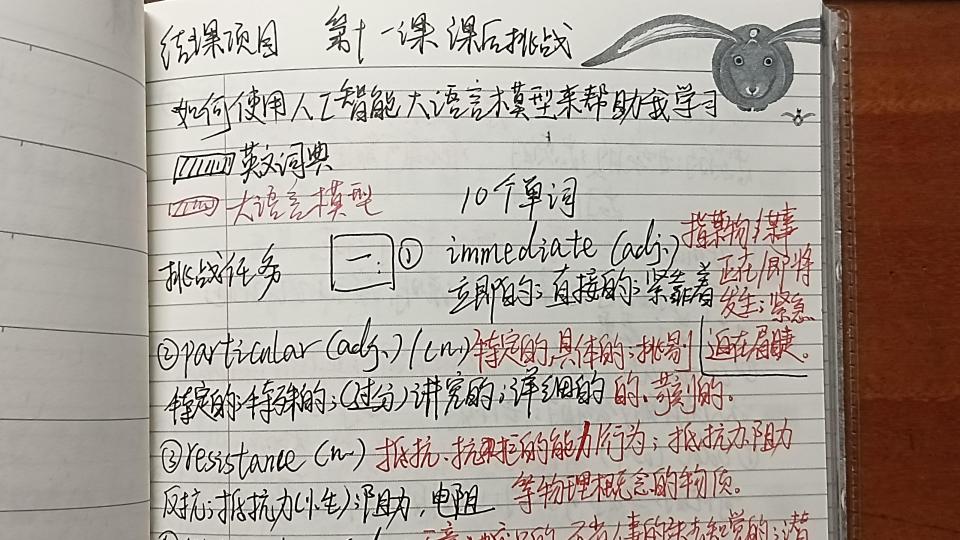 结课项目 第十一课 课后挑战
如何使用人工智能大语言模型来帮助我学习
英文词典
大语言模型 10个单词
挑战任务 一: ① immediate (adj.) 指某物/某事
立即的;直接的;紧靠着 正在/即将
发生;紧急
迫在眉睫。
②particular (adj.) / (n.) 特定的,具体的;挑剔
特定的;特殊的;(过分)讲究的;详细的 的、苛刻的。
③resistance (n.) 抵抗、抗拒的能力/行为;抵抗力.阻力
反抗;抵抗力(小生);阻力,电阻 等物理概念的物质。